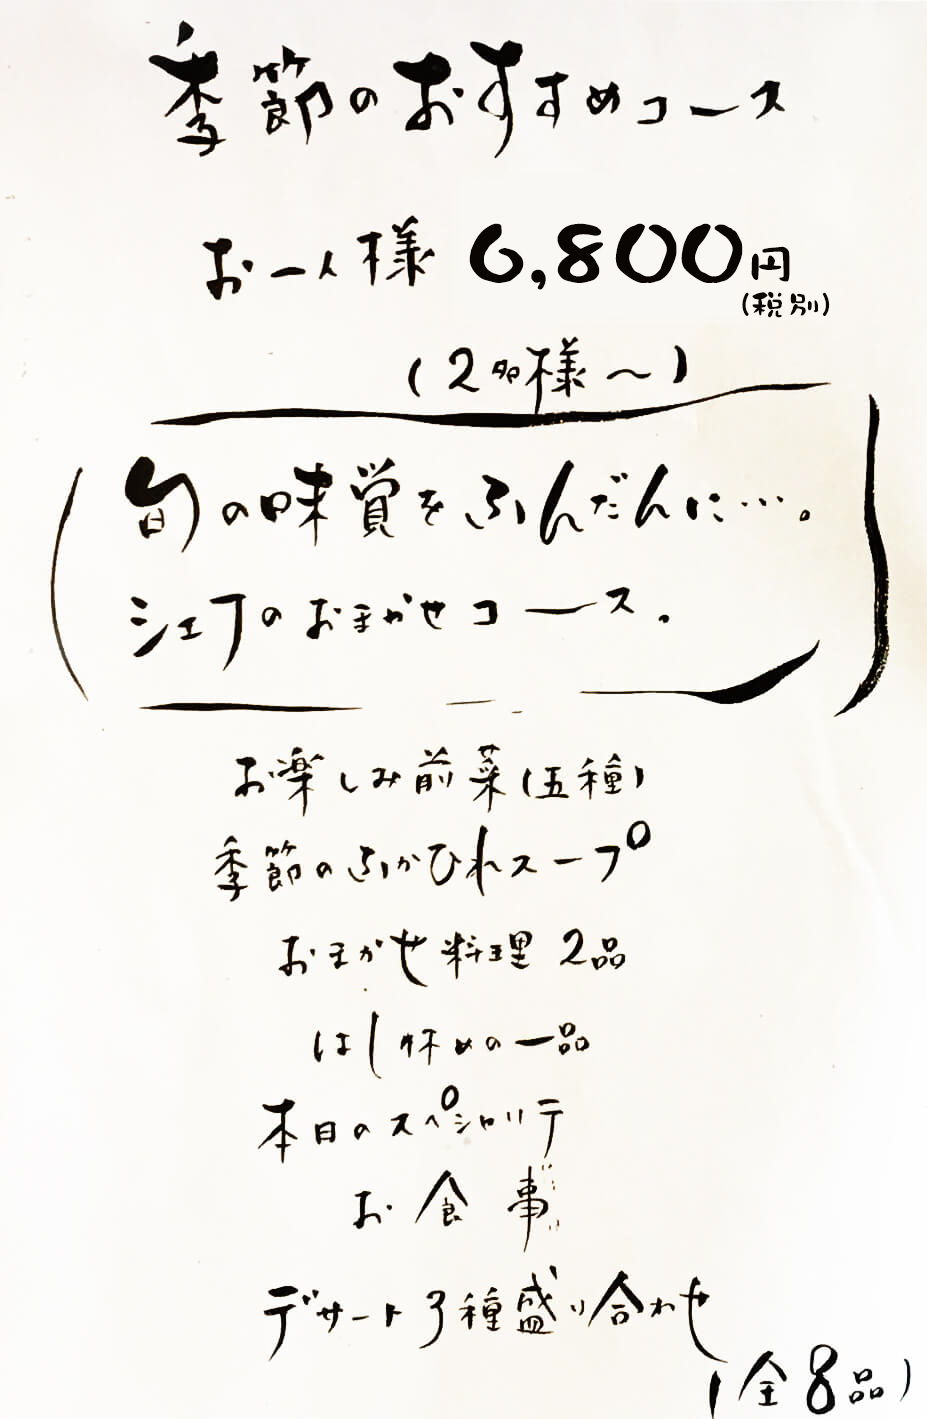 季節のおすすめコース
お一人様 6,800円
(税別)
(2名様〜)
旬の味覚をふんだんに…。
シェフのおまかせコース.
お楽しみ前菜(五種)
季節のふかひれスープ
おまかせ料理 2品
はし休めの一品
本日のスペシャリテ
お食事
デザート3種盛り合わせ
(全8品)